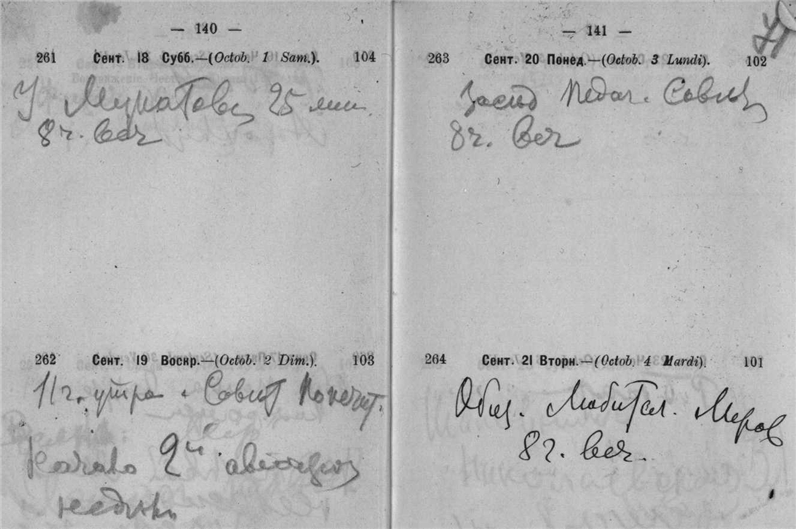 — 140 —
261 Сент. 18 Субб.—(Octob. 1 Sam.). 104
У Муратова 25 мин.
8 ч. веч
262 Сент. 19 Воскр.—(Octob. 2 Dim.). 103
11 ч. утра. Совит Попечит.
Начало 2й
недели
— 141 —
71
263 Сент. 20 Понед.—(Octob. 3 Lundi). 102
Засед Педаг. Совит
8 ч. веч
264 Сент. 21 Вторн.—(Octob. 4 Mardi). 101
Общ. Любител. Миров
8 г. веч.